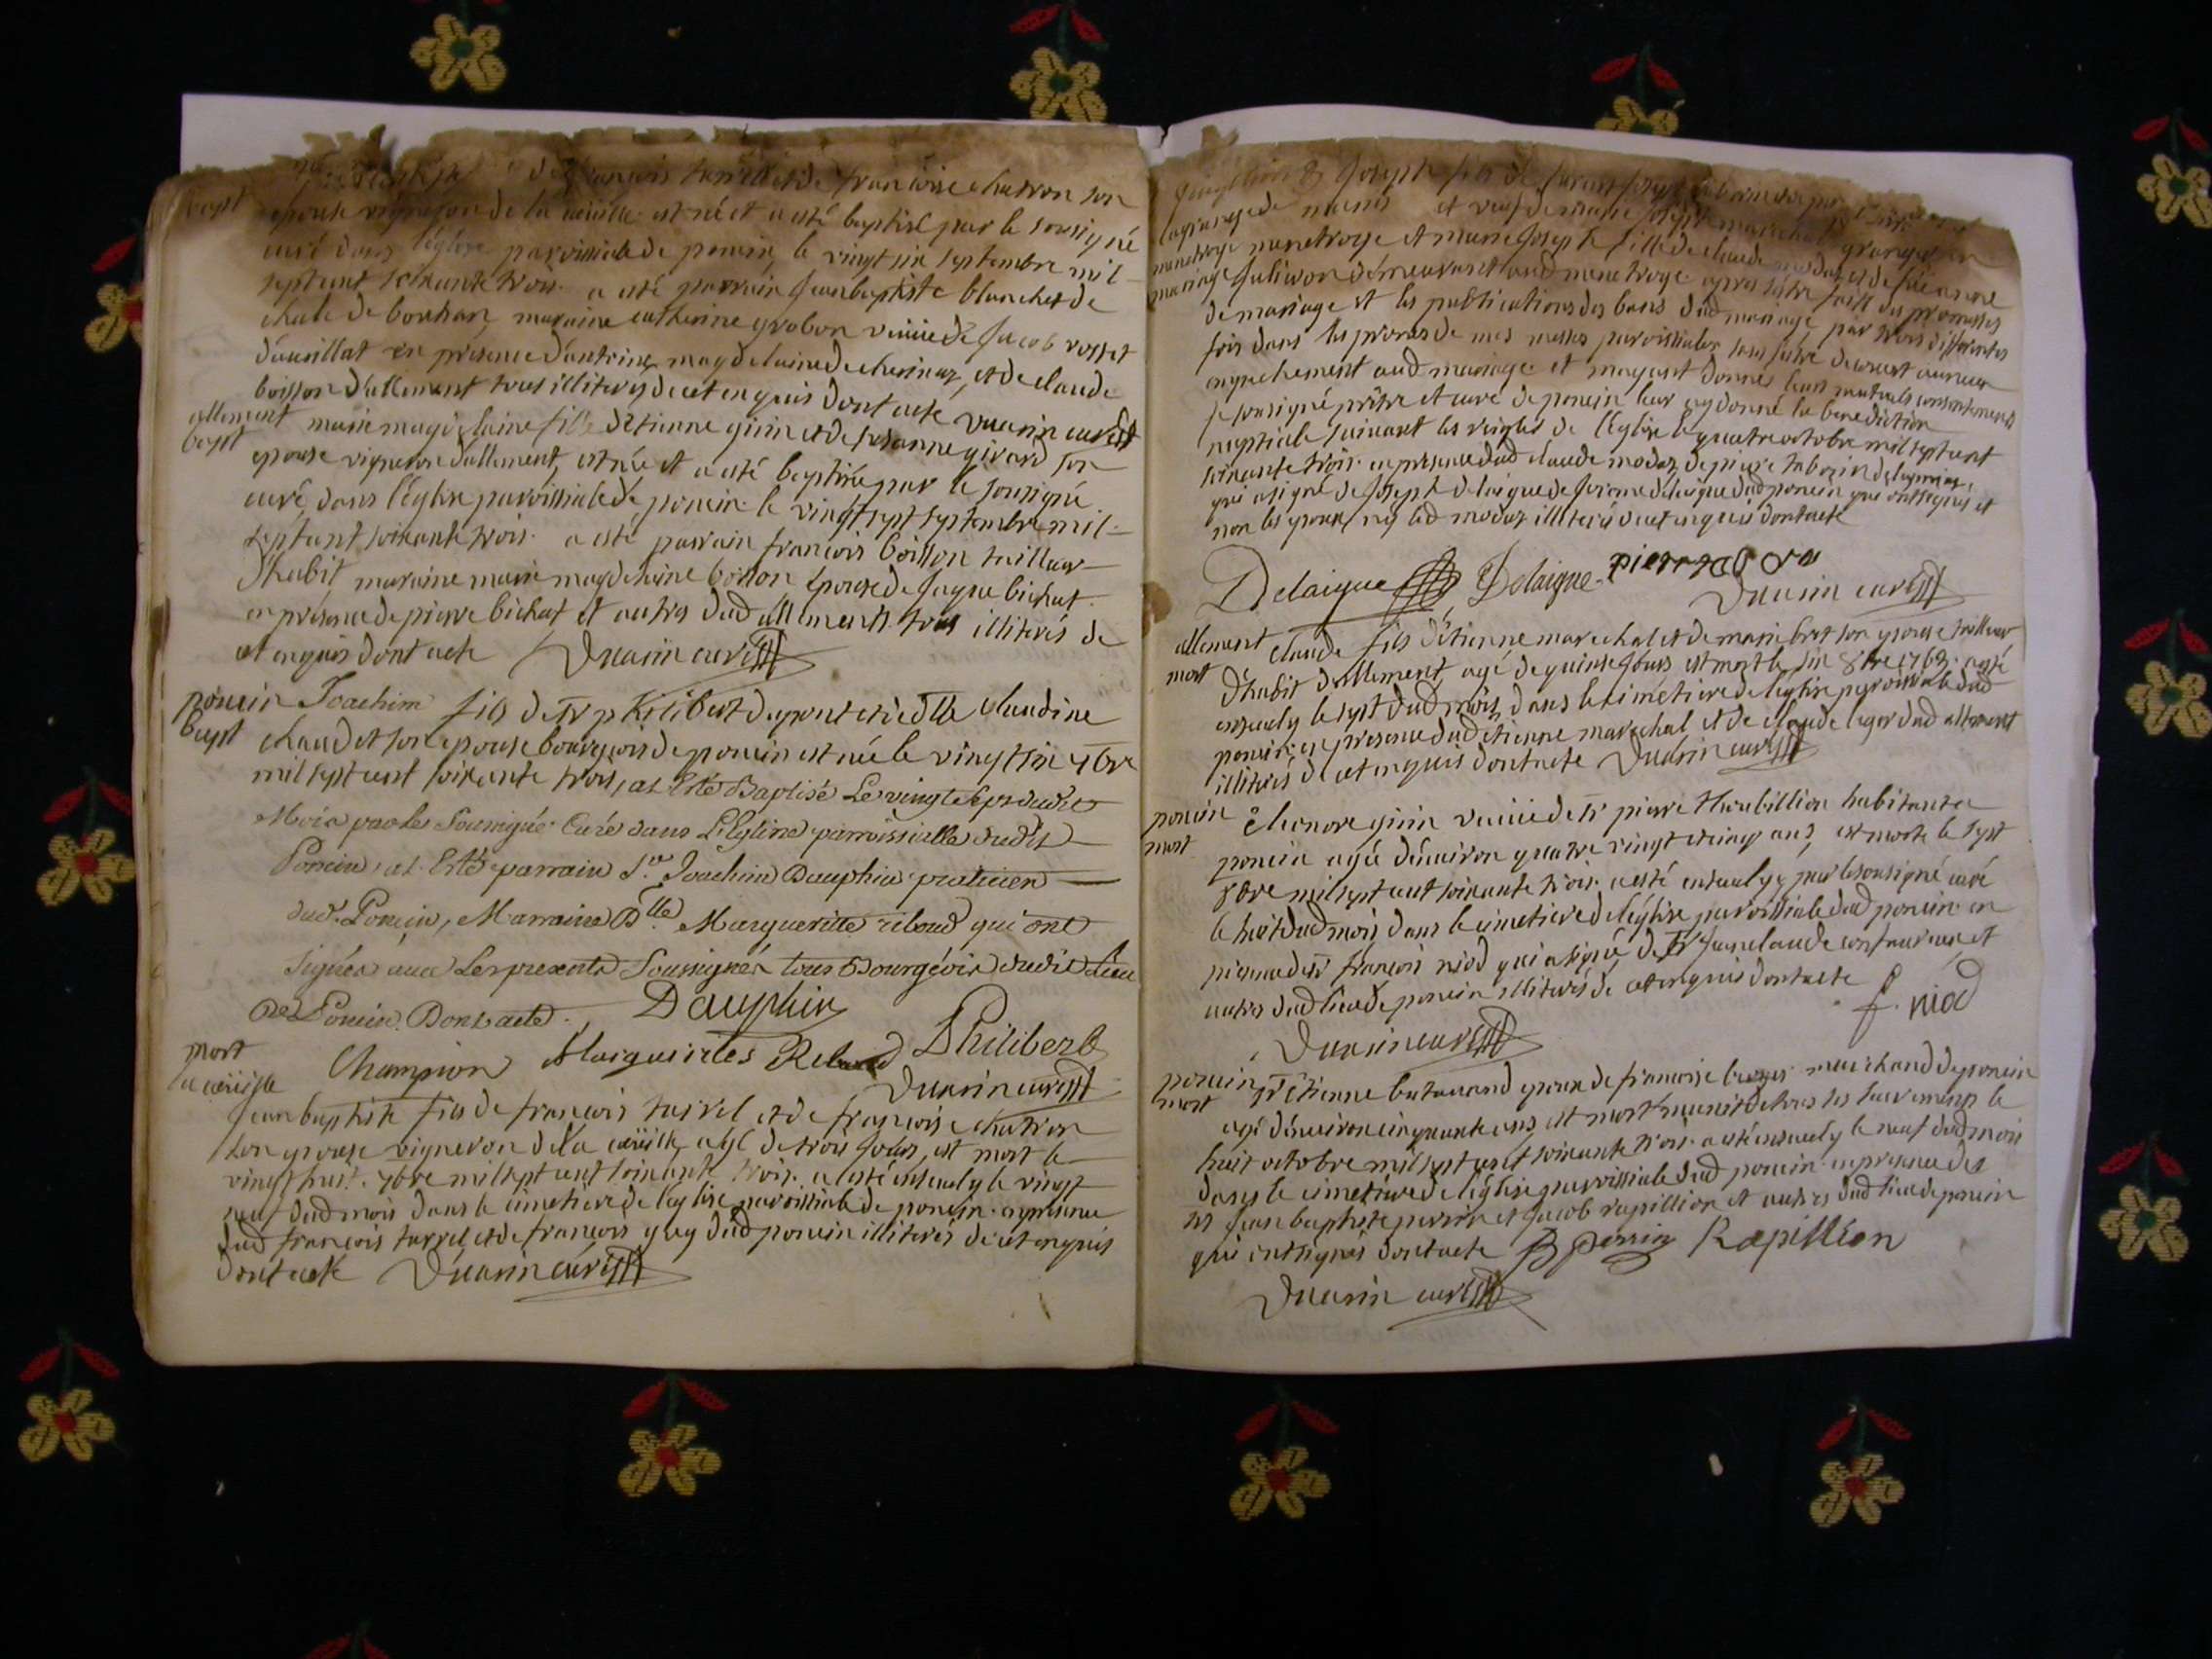 de francois turrel et de francoise chatron son
bapt epouse vigneron de la cueille est né et a esté baptisé par le sousigné
curé dans l'église parroissiale de poncin le vingt six septembre mil
sept cent soixante trois a esté parrain jean baptiste blanchet de
de bouhan, maraine catherine grobon veuve de jacob rosset
en présence d'antoine magdelaine de chenavaz, et de claude
boisson d'allement tous illiterés de ce enquis dont acte Duarin curé
allement marie magdelaine fille d'étienne guin et de susanne girard son
bapt epouse vigneron d'allement, est née et a esté baptisée par le sousigné
curé, dans l'église paroissiale de poncin le vingt sept septembre mil
sept cent soixante trois a esté parrain francois boisson tailleur
d'habit maraine marie magdelaine boisson epouse de jaque bichat
en présence de pierre bichat et autres dud allement tous illiterés de
ce enquis dont acte Duarin curé
poncin Joachim fils de sr philibert dupont et de dlle claudine
bapt chaudet son epouse bourgeois de poncin est né le vingt six 7bre
mil sept cent soixante trois, at Esté Baptisé Le vingt Sept dudit
Mois par le Soussigné Curé dans L'Eglise parroissialle dudit
Poncin, at Esté parrain Sr. Joachim Dauphin praticien
dud. Poncin, Marraine Dlle Margueritte riboud qui ont
signés avec Les presents Soussignés tous Bourgeois dudit Lieu
de Poncin. Dont acte. Dauphin
Champion Marguerites Riboud Philibert
Duarin curé
mort
la cueille
jean baptiste fils de francois turrel et de francoise chatron
son epouse vigneron de la cueille, agé de trois jours, est mort le
vingt huit 7bre mil sept cent soixante trois a esté enseuely le vingt
neuf dud mois dans le cimetiere de l'église paroissiale de poncin en présence
dud francois turrel et de francois guy dud poncin illiterés de ce enquis
dont acte Duarin curé
joseph fils de
la grange de et veuf de marie
menetroye menetroye et marie joseph fille de claude modaz et de
mariage jullivon demeurant aud menetroye après s'estre fait des promesses
de mariage et les publications des bans dud mariage par trois differentes
fois dans les prones de mes messes paroissiales sans s'estre decouvert aucun
empechement aud mariage et m'ayant donnés leurs mutuels consentements
je sousigné prêtre et curé de poncin leur ay donné la benediction
nuptiale suivant les reigles de l'église le quatre octobre mil sept cent
soixante trois en présence dud claude modaz, de pierre taborin
qui a signé de joseph delaigue de jerome delaigue dud poncin qui ont signés et
non les epoux ny led modaz illiterés de ce enquis dont acte
Delaigue Delaigue pierr tabora
Duarin curé
allement claude fils d'étienne marechal et de marie bret son epouse tailleur
mort d'habit d'allement, agé de quinze jours est mort le six 8bre 1763 a esté
enseuely le sept dud mois, dans le cimetiere de l'eglise paroissiale dud
poncin en presence dud etienne marechal et de claude leger dud allement
illiterés de ce enquis dont acte Duarin curé
poncin Eleonore guin veuve de sr pierre thoubillion habitante a
mort poncin agée d'environ quatre vingt et cinq ans, est morte le sept
8bre mil sept cent soixante trois a esté enseuelye par le sousigné curé
le huit dud mois, dans le cimetiere de l'église paroissiale dud poncin en
présence de sr francois niod qui a signé de sr jean claude et
autres dud lieu de poncin illiterés de ce enquis dont acte
f. niod
Duarin curé
poncin sr Etienne epoux de francoise marchand de poncin
mort agé d'environ cinquante ans, est mort munit de tous les sacrements le
huit octobre mil sept cent soixante trois a esté enseuely le neuf dud mois
dans le cimetiere de l'église parroissiale dud poncin en presence des
srs jean baptiste perrin et jacob rapillion et autres dud lieu de poncin
qui ont signés dont acte B perrin Rapillion
Duarin curé